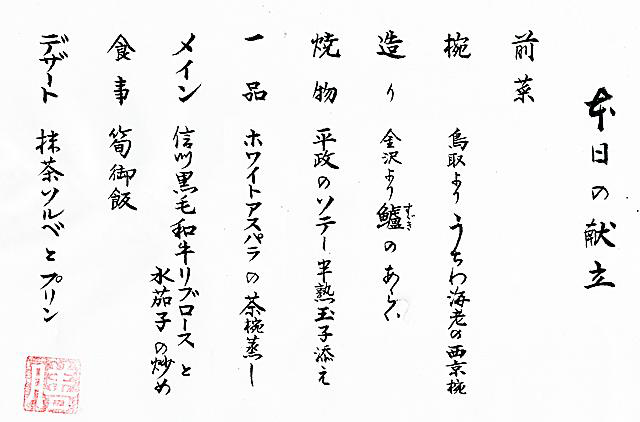 本日の献立
前菜
椀 鳥取より うちわ海老の西京椀
造り 金沢より鱸のあらい
すずき
焼物 平政のソテー半熟玉子添え
一品 ホワイトアスパラの茶椀蒸し
メイン 信州黒毛和牛リブロースと
水茄子の炒め
食事 筍御飯
デザート 抹茶ソルベとプリン